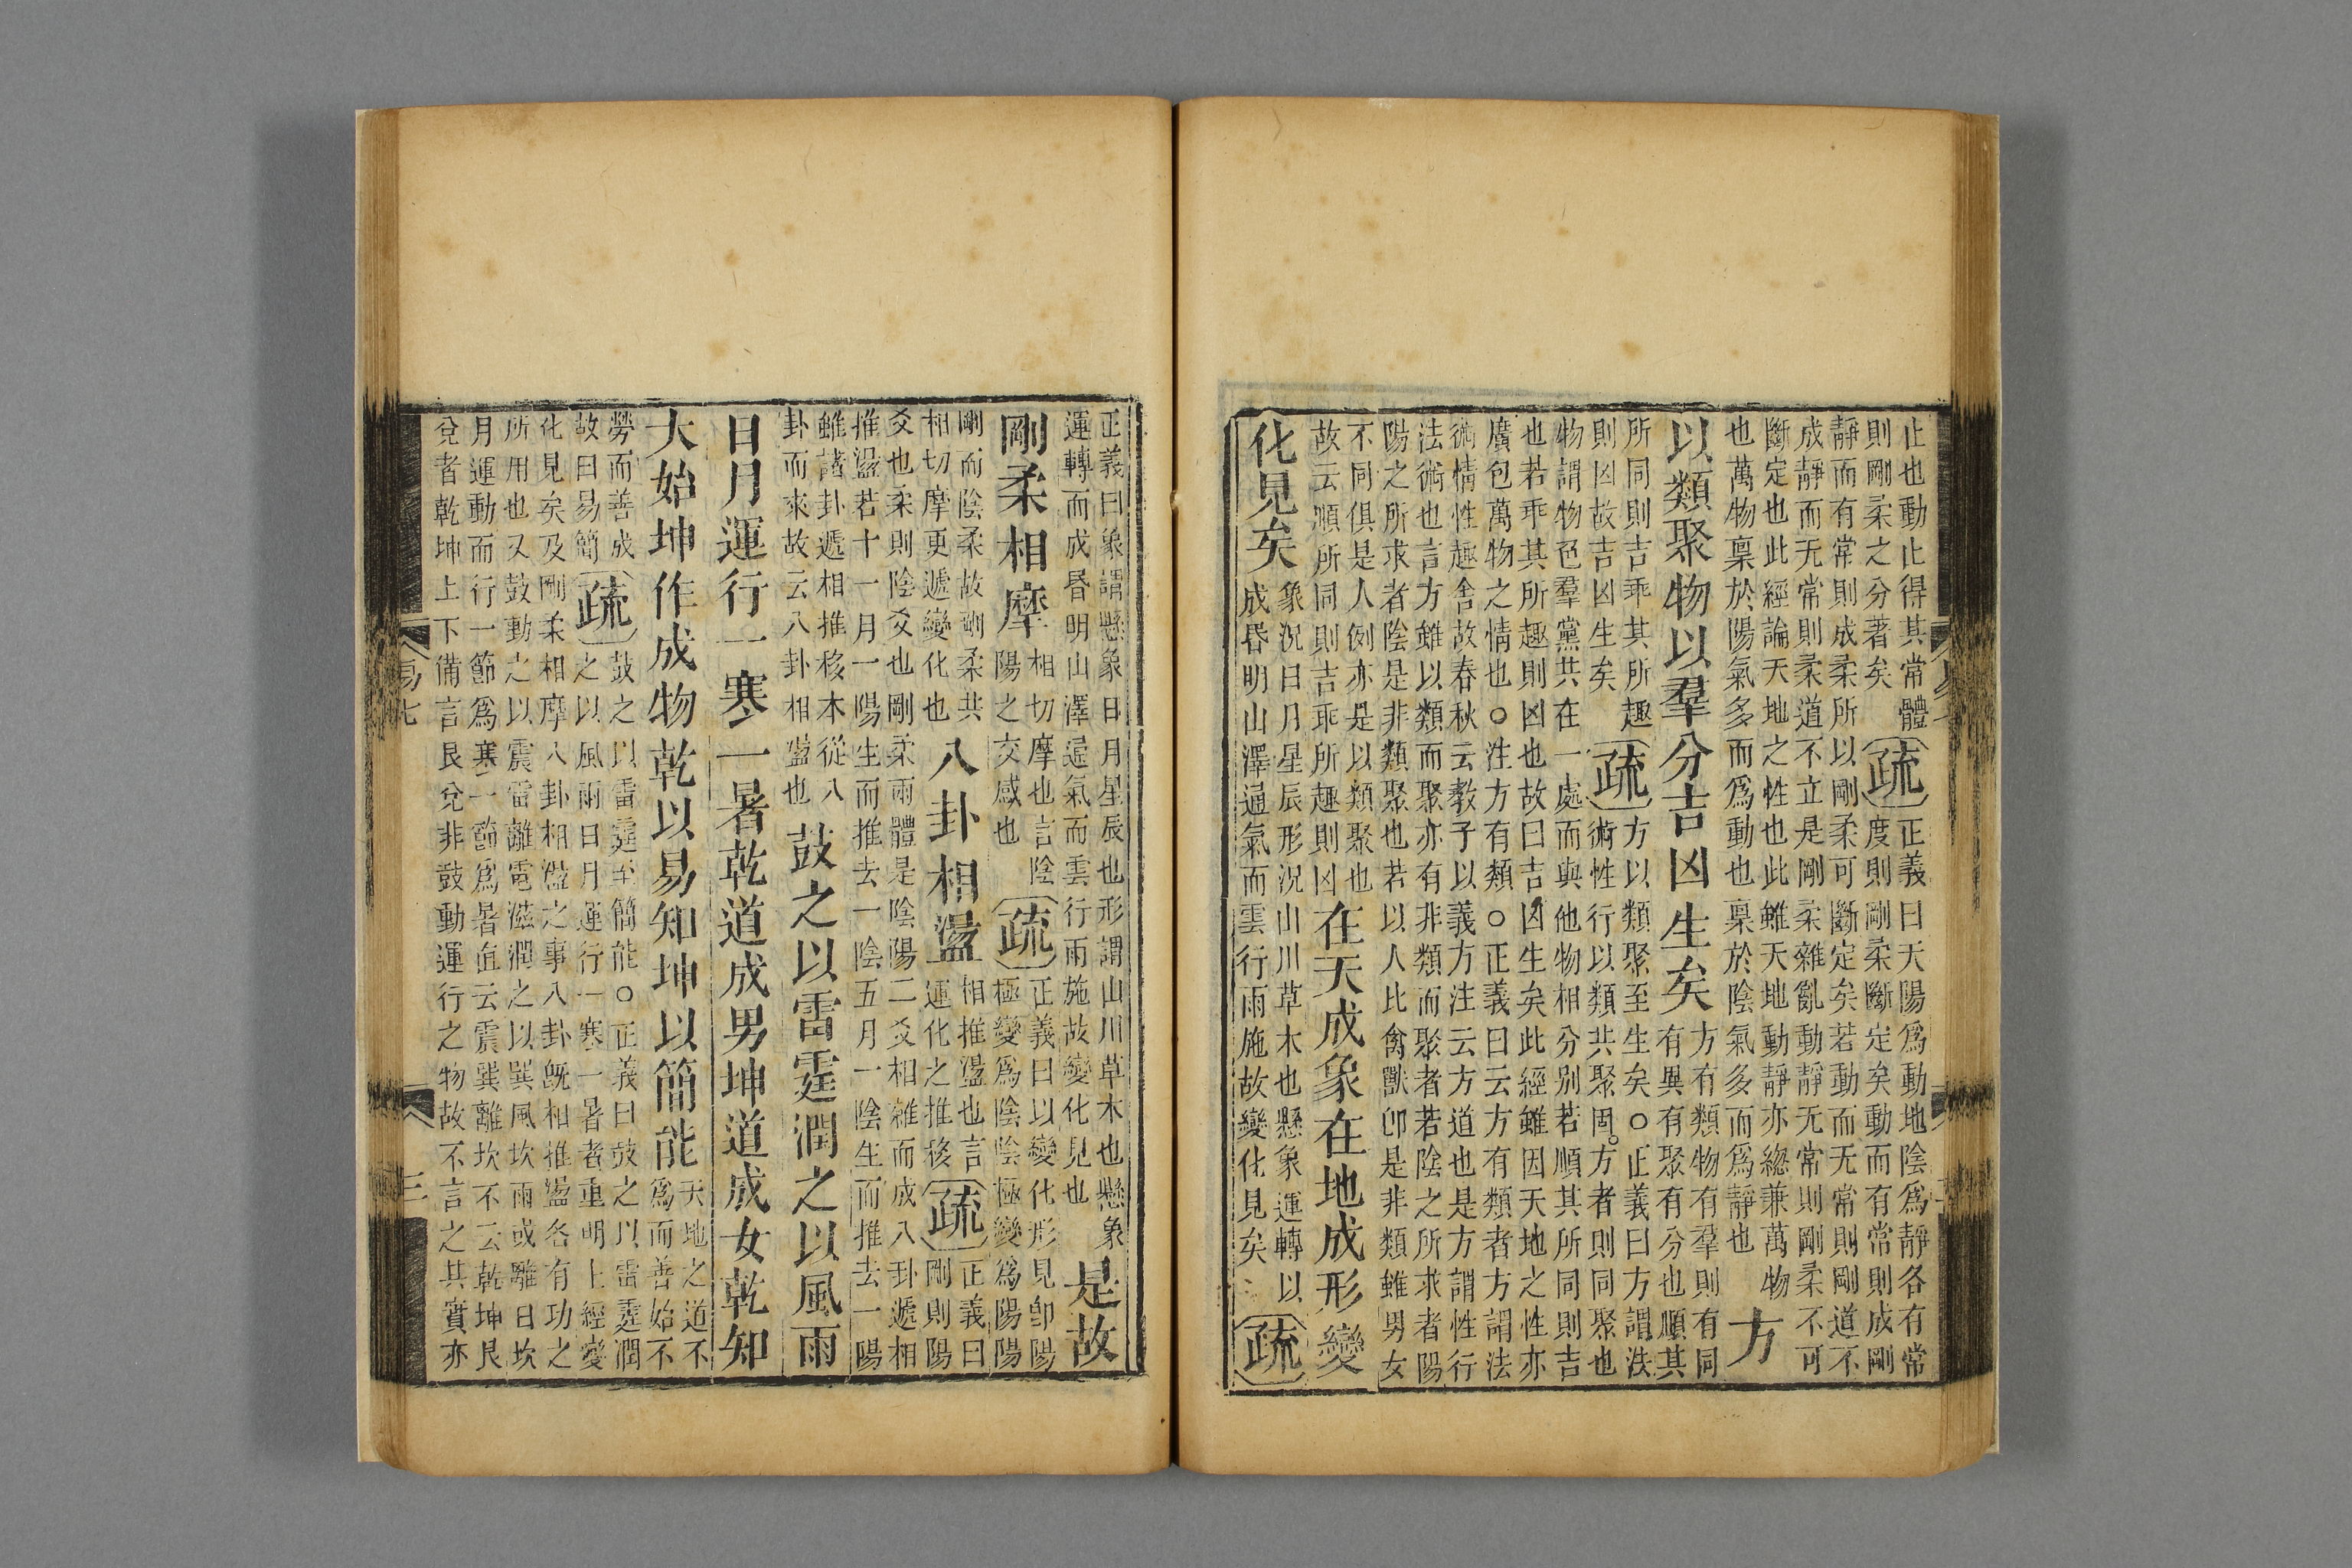 止也動止得其常體
則剛柔之分著矣
疏
正義曰天陽爲動地陰爲靜各有常
度則剛柔斷定矣動而有常則成剛
靜而有常則成柔所以剛柔可斷定矣若動而无常則剛道不
成靜而无常則柔道不立是剛柔雜亂動靜无常則剛柔不可
斷定也此經論天地之性也此雖天地動靜亦緫兼萬物
也萬物稟於陽氣多而爲動也稟於陰氣多而爲靜也
方
以類聚物以羣分吉凶生矣
方有類物有羣則有同
有異有聚有分也順其
所同則吉乖其所趣
則凶故吉凶生矣
疏
方以類聚至生矣○正義曰方謂法
術性行以類共聚固方者則同聚也
物謂物色羣黨共在一處而與他物相分別若順其所同則吉
也若乖其所趣則凶也故曰吉凶生矣此經雖因天地之性亦
廣包萬物之情也○注方有類○正義曰云方有類者方謂法
術情性趣舍故春秋云教子以義方注云方道也是方謂性行
法術也言方雖以類而聚亦有非類而聚者若陰之所求者陽
陽之所求者陰是非類聚也若以人比禽獸卽是非類雖男女
不同俱是人例亦是以類聚也
故云順所同則吉乖所趣則凶
在天成象在地成形變
化見矣
象況日月星辰形況山川草木也懸象運轉以
成昏明山澤通氣而雲行雨施故變化見矣
疏
正義曰象謂懸象日月星辰也形謂山川草木也懸象
運轉而成昏明山澤通氣而雲行雨施故變化見也
是故
剛柔相摩
相切摩也言陰
陽之交感也
疏
正義曰以變化形見卽陽
極變爲陰陰極變爲陽陽
剛而陰柔故剛柔共
相切摩更遞變化也
八卦相盪
相推盪也言
運化之推移
疏
正義曰
剛則陽
爻也柔則陰爻也剛柔兩體是陰陽二爻相雜而成八卦遞相
推盪若十一月一陽生而推去一陰五月一陰生而推去一陽
雖諸卦遞相推移本從八
卦而來故云八卦相盪也
鼓之以雷霆潤之以風雨
日月運行一寒一暑乾道成男坤道成女乾知
大始坤作成物乾以易知坤以簡能
天地之道不
爲而善始不
勞而善成
故曰易簡
疏
鼓之以雷霆至簡能○正義曰鼓之以雷霆潤
之以風雨日月運行一寒一暑者重明上經變
化見矣及剛柔相摩八卦相盪之事八卦旣相推盪各有功之
所用也又鼓動之以震雷離電滋潤之以巽風坎雨或離日坎
月運動而行一節爲寒一節爲暑直云震巽離坎不云乾坤艮
兌者乾坤上下備言艮兌非鼓動運行之物故不言之其實亦
易七
三